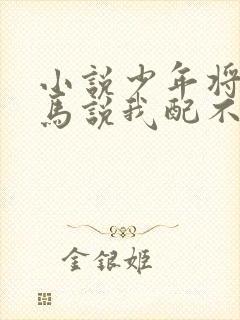 小說少年將
馬說我配不
金銀姬